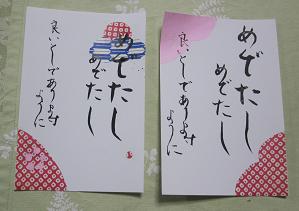 めでたし
めでたし
良いとしであります
ように
めでたし
めでたし
良いとしであります
ように